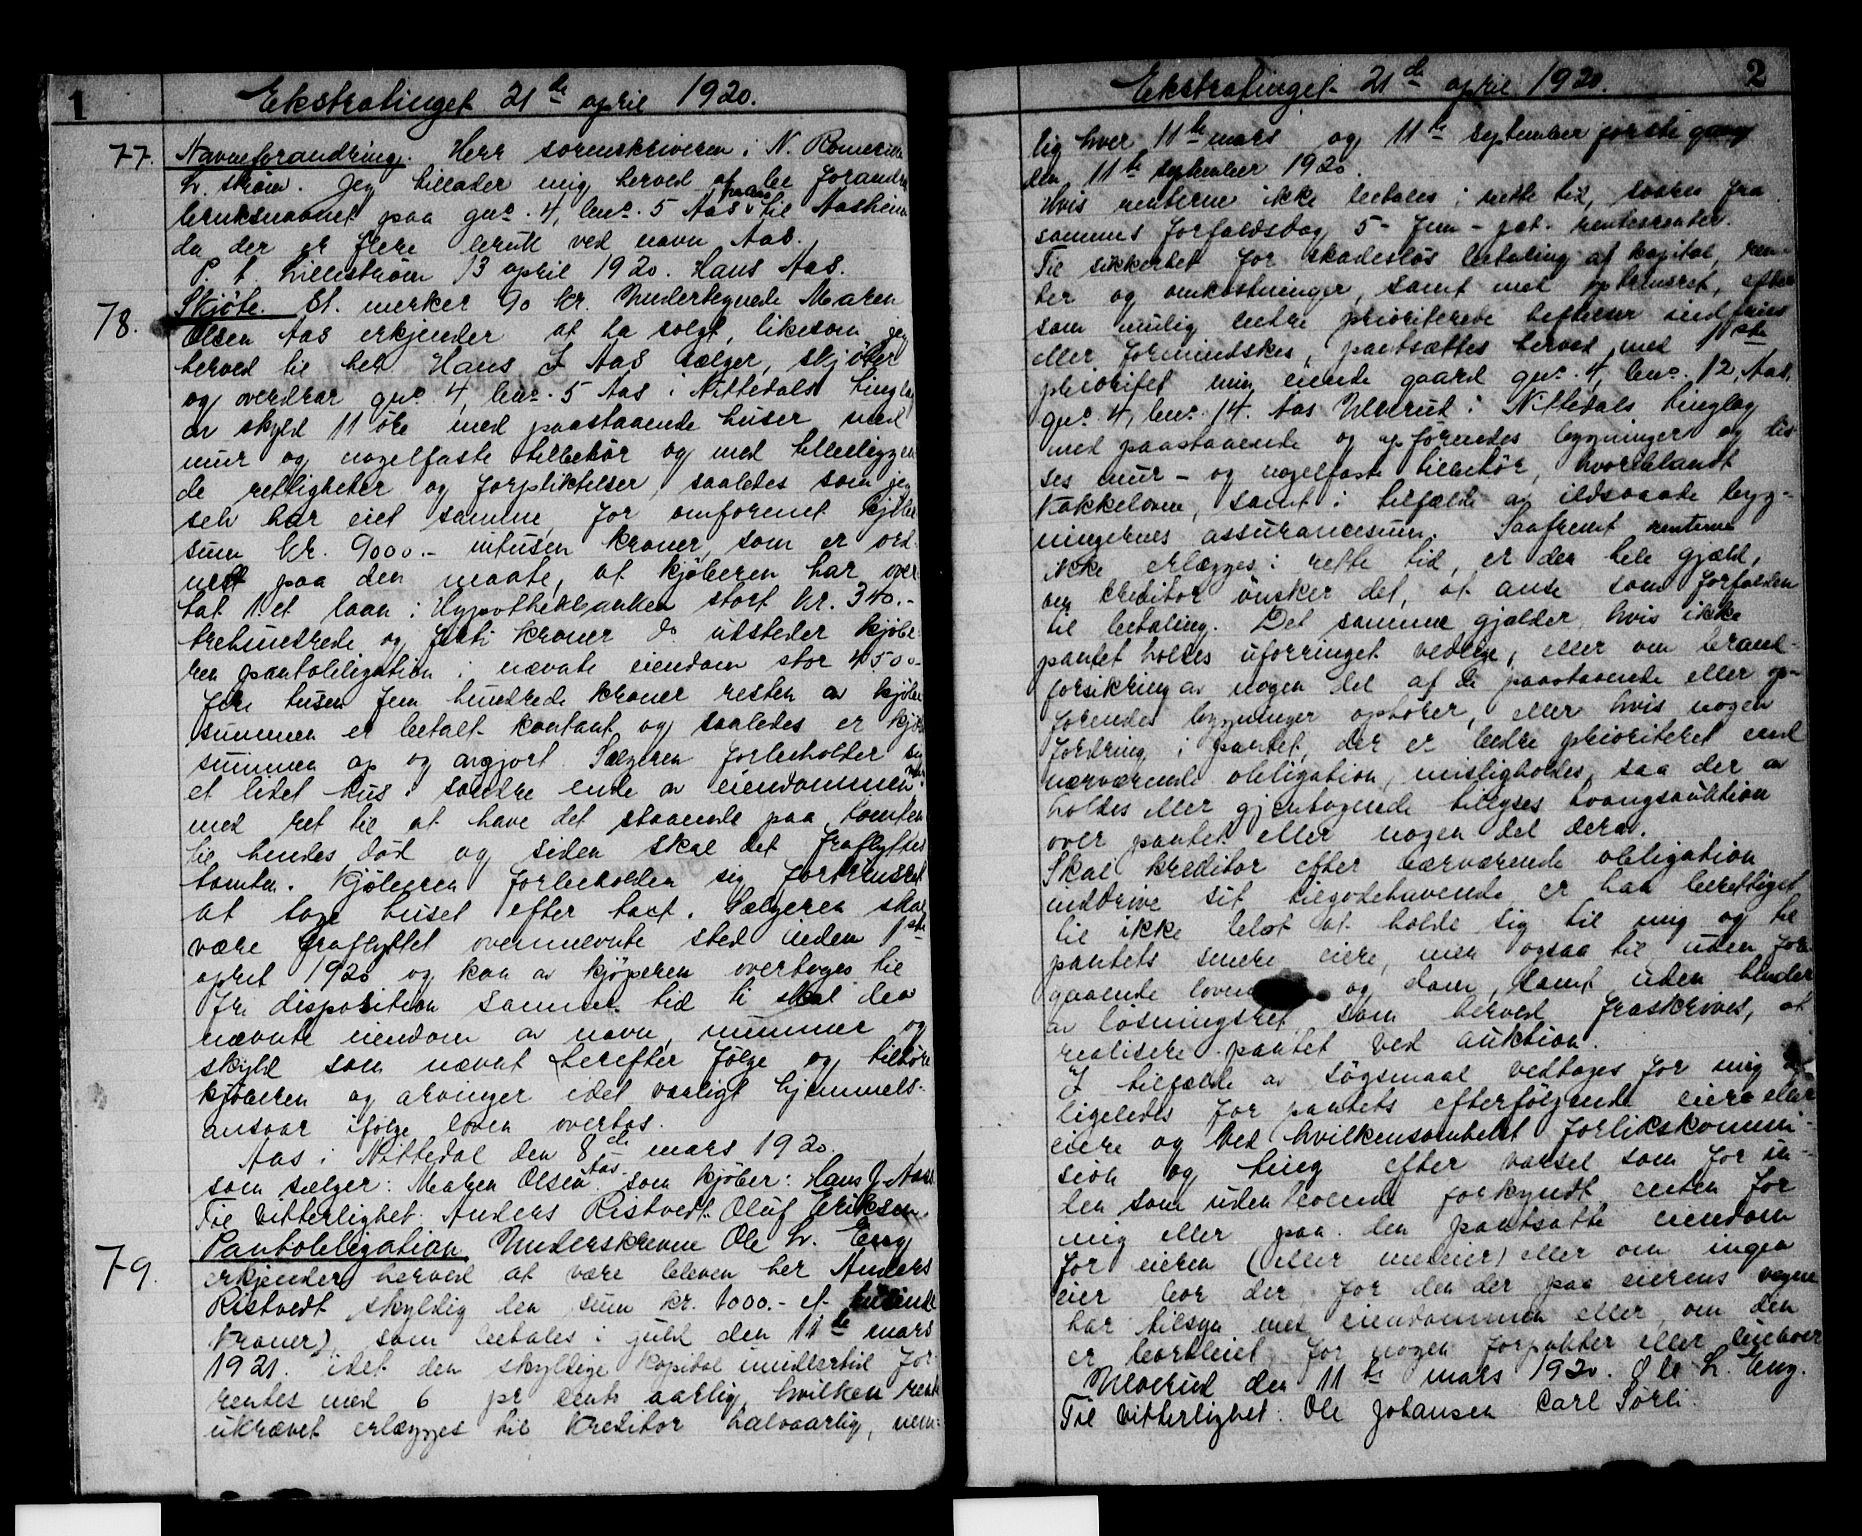 1
Ekstratinget 21de april 1920.
77. Navneforandring. Herr sorenskriveren i N. Romerike
L.strøm. Jeg tillater mig herved at be forandre
bruksnavnet paa gno. 4, bno. 5 Aas til Aasheim
da der er flere bruk ved navn Aas.
P. t. Lillestrøm 13 april 1920. Hans Aas.
78. Skjøte. St. merker 90 kr. Undertegnede Maren
Olsen Aas erkjender at ha solgt, likesom jeg
herved til hr. Hans J Aas sælger, skjøter
og overdrar gno. 4, bno. 5 Aas i Nittedals tinglag
av skyld 11 øre med paastaaende huser med
mur og nagelfaste tilbehør og med tilliggen
de rettigheter og forpliktelser, saaledes som jeg
selv har eiet samme, for omforenet kjøbe
sum kr. 9000.- nitusen kroner, som er ord-
net paa den maate, at kjøberen har over
tat 1. et laan i Hypothekbanken stort kr. 340.-
trehundrede og førti kroner do utsteder kjøbe-
ren pantobligation i nævnte eiendom stor 4500-
fire tusen fem hundrede kroner resten av kjøbe
summen er betalt kontant og saaledes er kjøbe
summen op og avgjort. Sælgeren forbeholder sig
et litet hus i søndre ende av eiendommen
med ret til at have det staaende paa tomten
til hendes død og siden skal det fraflyttes
tomten. Kjøberen forbeholden sig fortrinsret
at tage huset efter taxt. Sælgeren skal
være fraflyttet ovennevnte sted inden 1ste
april 1920 og kan av kjøperen overtages til
fri disposition samme tid ti skal den
nævnte eiendom av navn, nummer og
skyld som nævnt herefter følge og tilhøre
kjøberen og arvinger idet vanligt hjemmels-
ansvar ifølge loven overtas.
Aas i Nittedal den 8de mars 1920.
som sælger: Maren Olsen Aas. som kjøber: Hans J. Aas.
Til vitterlighet. Anders Ristvedt. Oluf Eriksen.
79. Pantobligation. Underskrevne Ole L. Eng
erkjender herved at være bleven hr Anders
Ristvedt skyldig den sum kr. 1000.- et tusinde
kroner) som betales i guld den 11te mars
1921. idet den skyldige kapital imidlertid for-
rentes med 6 pr cent aarlig, hvilken rente
ukrævet erlægges til kreditor halvaarlig, nem-
2
Ekstratinget 21de april 1920.
lig hver 11te mars og 11te september første gang
den 11te september 1920.
Hvis renterne ikke betales i rette tid, svares fra
sammes forfaldsdag 5 - fem - pct. rentesrenter.
Til sikkerhet for skadesløs betaling af kapital, ren-
ter og omkostninger, samt med optrinsret, efter
som mulig bedre prioriterede heftelser indfries
eller formindskes, pantsættes herved med 1ste
prioritet min eiende gaard gno. 4, bno. 12, Aas,
gno. 4, bno. 14. Aas Ulverud i Nittedals tinglag
med paastaaende og opførendes bygninger og dis
ses mur - og nagelfaste tilbehør, hvoriblandt
kakkelovne, samt i tilfælde av ildsvaade byg-
ningernes assurancesum. Saafremt renterne
ikke erlægges i rette tid, er den hele gjæld,
om kreditor ønsker det, at anse som forfalden
til betaling. Det samme gjælder, hvis ikke
pantet holdes uforringet vedlige, eller om brand-
forsikring av nogen del af de paastaaende eller op-
førendes bygninger ophører, eller hvis nogen
fordring i pantet, der er bedre prioriteret end
nærværende obligation, misligholdes, saa der av
holdes eller gjentagende tillyses tvangsauktion
over pantet eller nogen del derav.
Skal kreditor efter nærværende obligation
inddrive sit tilgodehavende er han berettiget
til ikke blot at holde sig til mig og til
pantets senere eiere, men ogsaa til uden for-
gaaende og dom, samt uden hinder
av løsningsret som herved fraskrives, at
realisere pantet ved auktion.
I tilfælde av søgsmaal vedtages for mig og
ligeledes for pantets efterfølgende eiere eller
eiere og ved hvilkensomhelst forlikskommi-
sion og ting efter varsel som for in-
den som uden boende forkyndt enten for
mig eller paa den pantsatte eiendom
for eieren (eller medeier) eller om ingen
eier bor der for den der paa eierens vegne
har tilsyn med eiendommen eller, om den
er bortleiet, for nogen forpakter eller leieboer
Ulverud den 11te mars 1920. Ole L. Eng.
Til vitterlighet: Ole Johansen Carl Sørli.